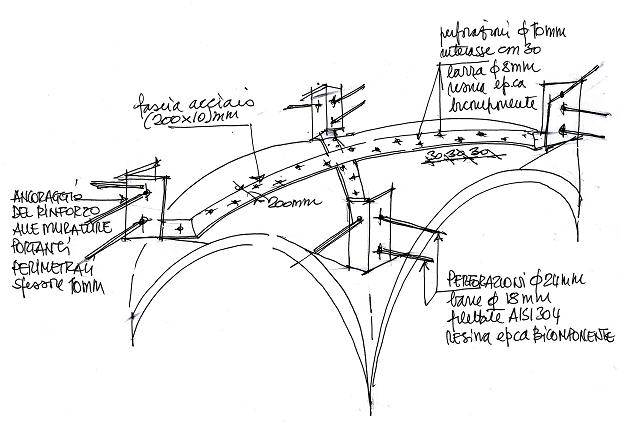 perforazioni φ 10mm
interasse cm 30
barra φ 8mm
resina ep.ca
bicomponente
fascia acciaio
(200x10)mm
30 30 30
200mm
ANCORAGGIO
DEL RINFORZO
ALLE MURATURE
PORTANTI
PERIMETRALI
spessore 10mm
PERFORAZIONI φ 24mm
barre φ 18mm
filettate AISI 304
RESINA ep.ca BICOMPONENTE